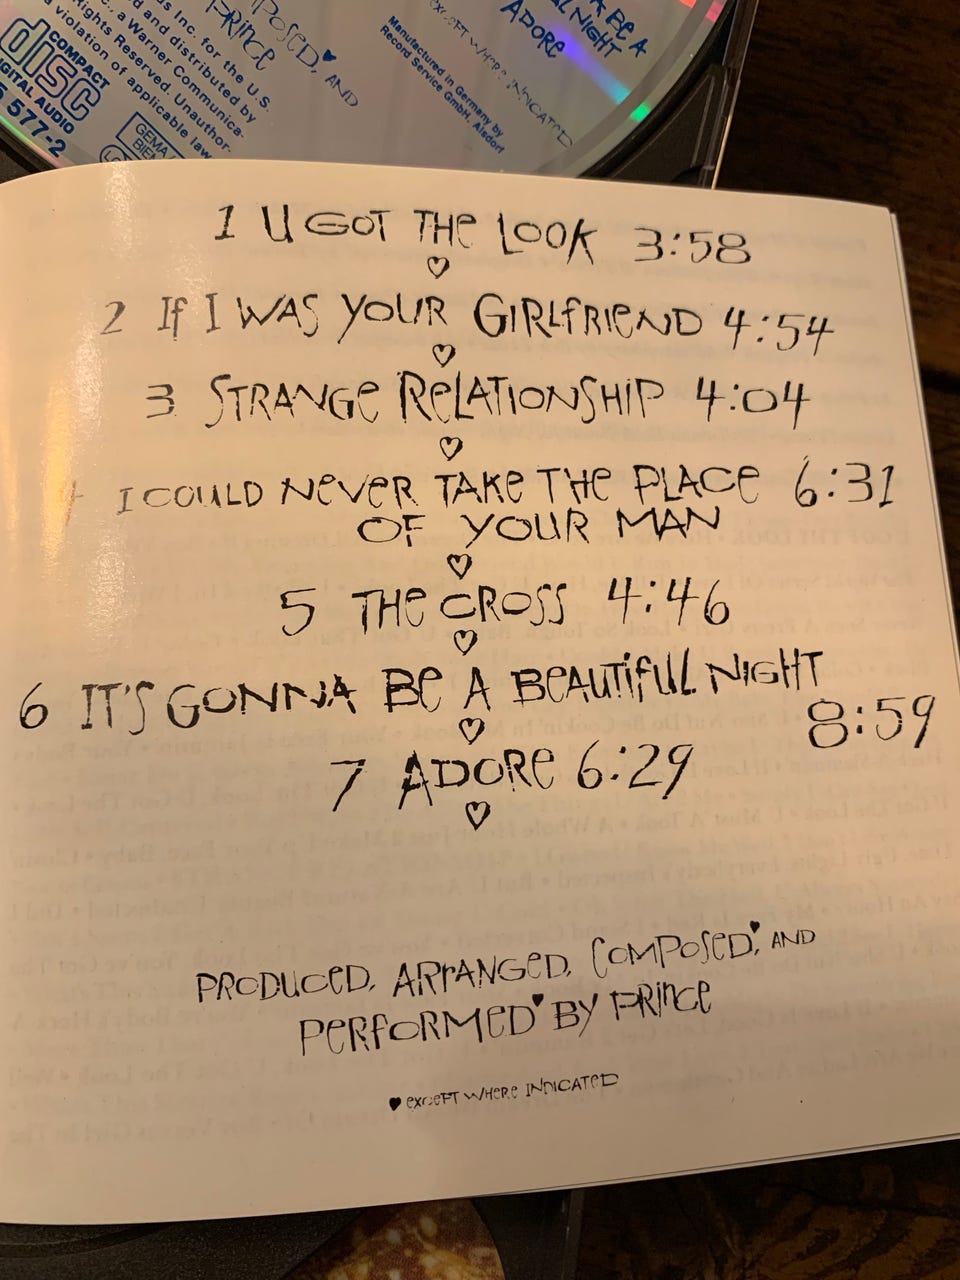 COMPACT
disc
DIGITAL AUDIO
577-2
Inc. for the U.S.
and distributed by
a Warner Communica-
Rights Reserved. Unauthor-
violation of applicable law
GEMA
BIEM
PRINCE
AND
Manufactured in Germany by
Record Service GmbH, Alsdorf
EXCEPT WHERE INDICATED
BE A
NIGHT
ADORE
1 U GOT THE LOOK 3:58
2 If I WAS YOUR GIRLFRIEND 4:54
3 STRANGE RELATIONSHIP 4:04
4 I COULD NEVER TAKE THE PLACE 6:31
OF YOUR MAN
5 THE CROSS 4:46
6 IT'S GONNA BE A BEAUTIFUL NIGHT
8:59
7 ADORE 6:29
PRODUCED, ARRANGED, COMPOSED,♥ AND
PERFORMED♥ BY PRINCE
♥ EXCEPT WHERE INDICATED